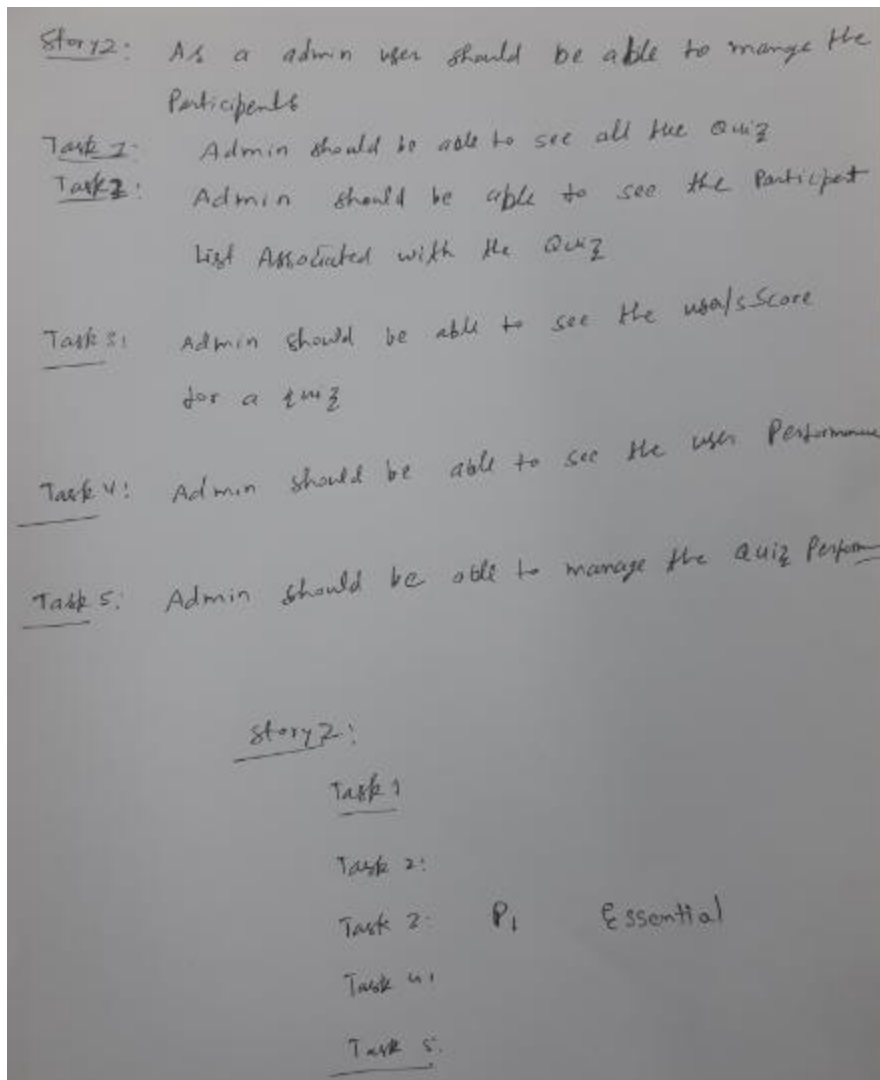 Story2: As a admin user should be able to mange the
Participents
Task 1: Admin should be able to see all the Quiz
Task2: Admin should be able to see the Participent
List Associated with the Quiz
Task 3: Admin should be able to see the user/s Score
for a quiz
Task 4: Admin should be able to see the user Performance
Task 5: Admin should be able to manage the Quiz Perform
Story2:
Task 1
Task 2:
Task 2. P1 Essential
Task 4:
Task 5.